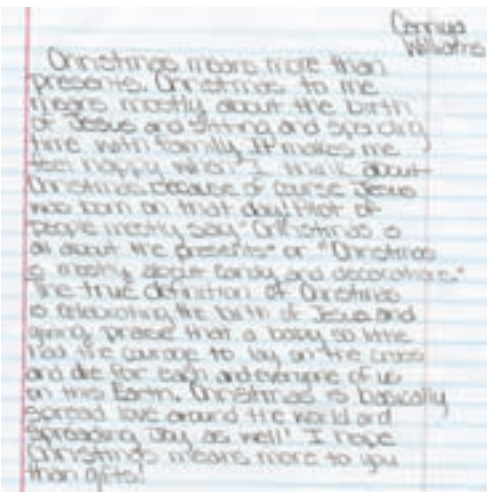 Williams
Christmas means more than
presents. Christmas to me
means mostly about the birth
of Jesus and sitting and spending
time with family. It makes me
feel happy when I think about
Christmas because of course Jesus
was born on that day! Most of
people mostly say "Christmas is
all about the presents" or "Christmas
is mostly about candy and decorations."
The true definition of Christmas
is celebrating the birth of Jesus and
giving praise that a baby so little
had the courage to lay on the cross
and die for each and everyone of us
on this Earth. Christmas is basically
spread love around the world and
spreading Joy as well! I hope
Christmas means more to you
than gifts!